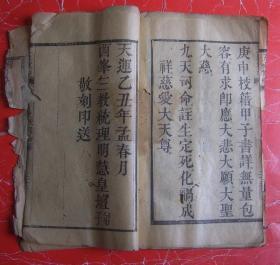 庚申校籍甲子書詳無量包
容有求即應大悲大願大聖
大慈
九天司命註生定死化禍成
祥慈愛大天尊
天運乙丑年孟春月
峯三教統理明慧皇壇
敬刻印送